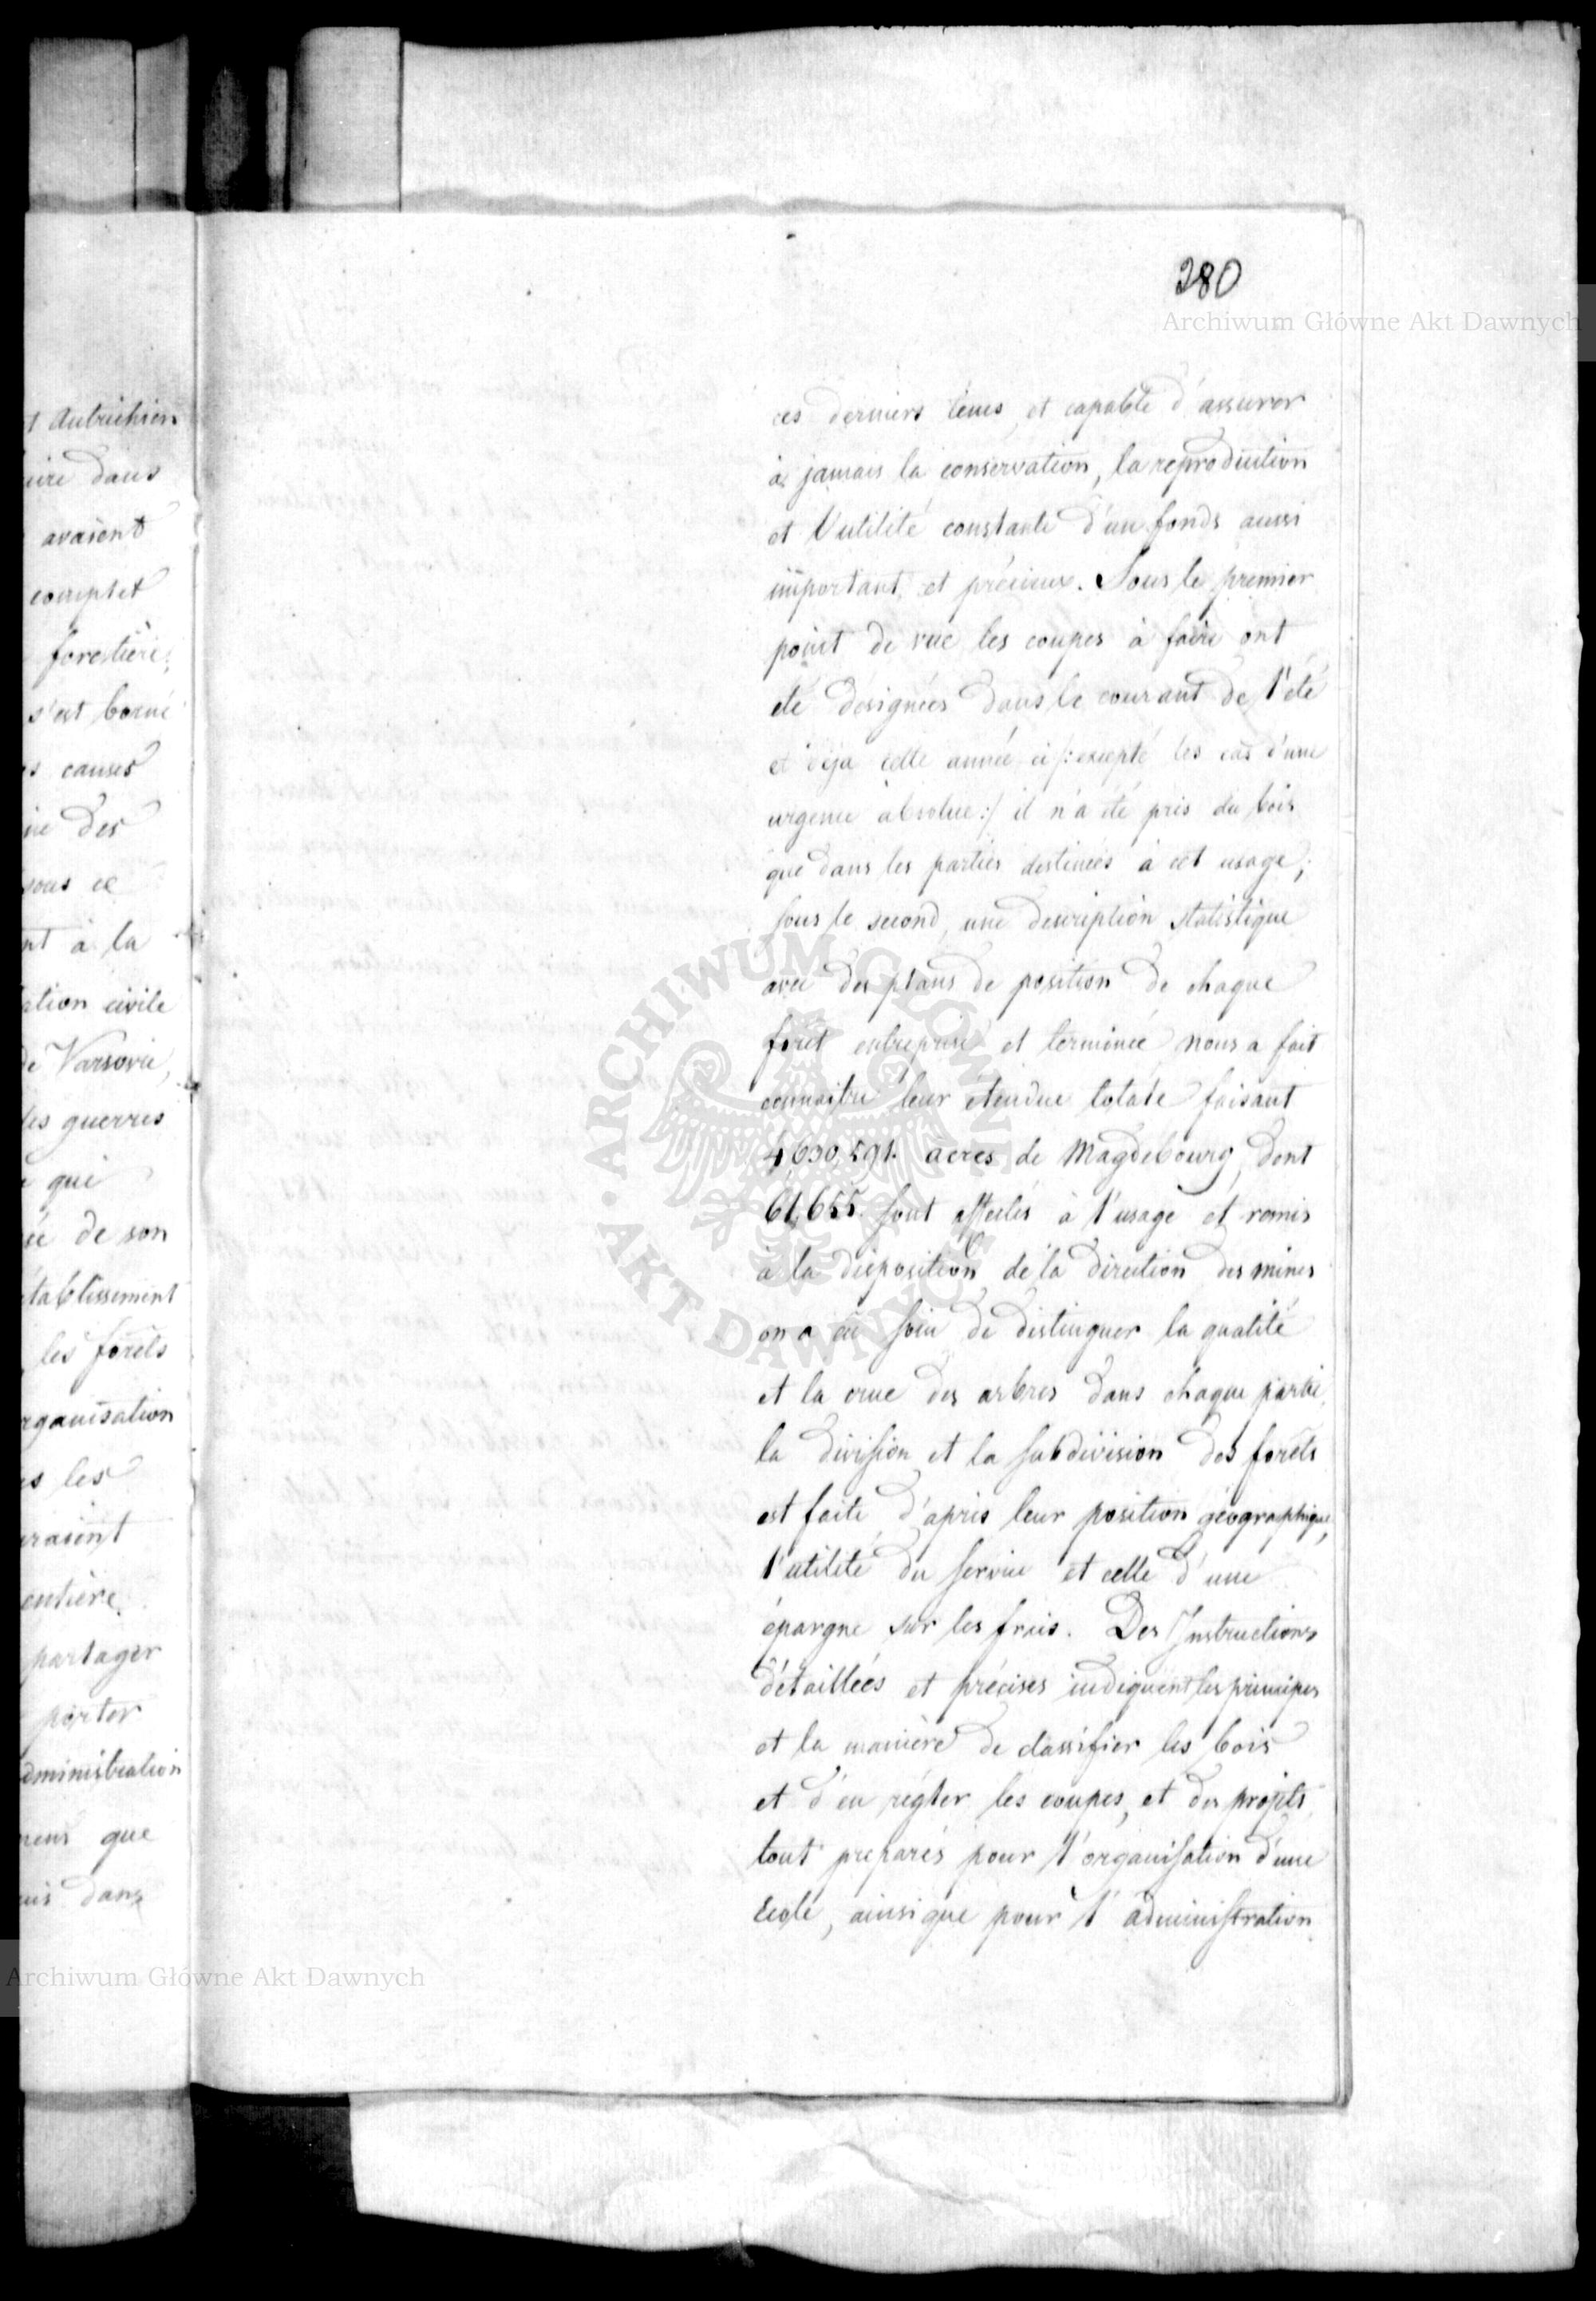 280
Archiwum Główne Akt Dawnych
t Autrichien
dans
avaient
complet
forestière,
s'est borné
causes
des
sous ce
nt à la
ation civile
de Varsovie,
les guerres
qui
de son
établissement
les forêts
rganisation
les
raient
entière
partager
porter
dministration
que
dans
ces derniers tems, et capable d'assurer
à jamais la conservation, la reproduction
et l'utilité constante d'un fonds aussi
important et précieux. Sous le premier
point de vue les coupes à faire ont
été désignées dans le courant de l'été
et déja cette année ci /: excepté les cas d'une
urgence absolue :/ il n'a été pris du bois
que dans les parties destinées à cet usage;
sous le second, une description statistique
avec des plans de position de chaque
forêt entreprise et terminée nous a fait
connaître leur étendue totale faisant
4,630,591. acres de Magdebourg, dont
61,655. sont affectés à l'usage et remis
à la disposition de la direction des mines
on a eû soin de distinguer la qualité
et la crue des arbres dans chaque partie,
la division et la subdivision des forêts
est faite d'après leur position géographique,
l'utilité du service et celle d'une
épargne sur les frais. Des Instructions
détaillées et précises indiquent les principes
et la manière de classifier les bois
et d'en régler les coupes, et des projets
tout preparés pour l'organisation d'une
Ecole, ainsi que pour l'administration
ARCHIWUM GŁÓWNE AKT DAWNYCH
Archiwum Główne Akt Dawnych